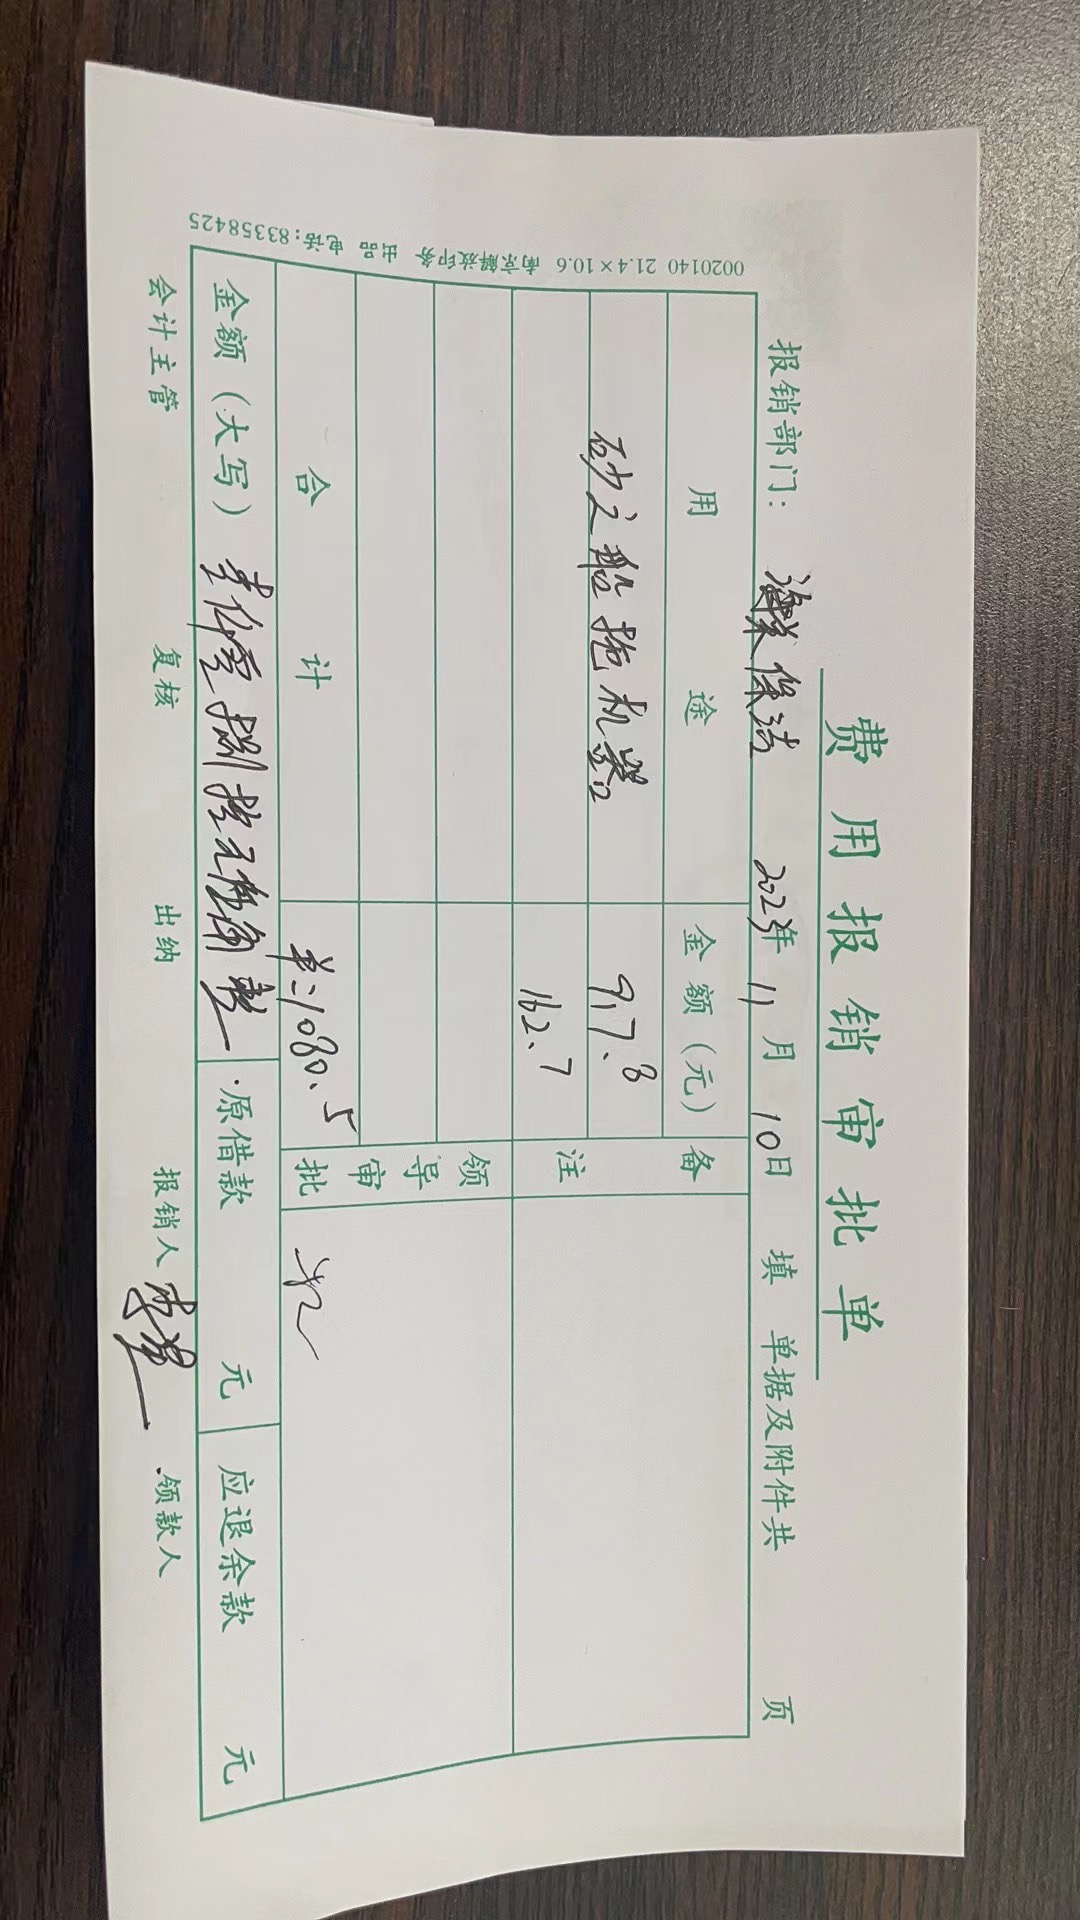 费用报销审批单
报销部门: 保洁 2023年 11月 10日 填 单据及附件共 页
用 途 金 额 (元) 备
砂之船拖机器 917.8
162.7 注
领
导
审
合 计 1080.5 批
金额(大写) 壹仟零捌拾元伍角整 原借款 元 应退余款 元
会计主管 复核 出纳 报销人 领款人
0020140 21.4×10.6 南京解放印务 出品 电话:83358425